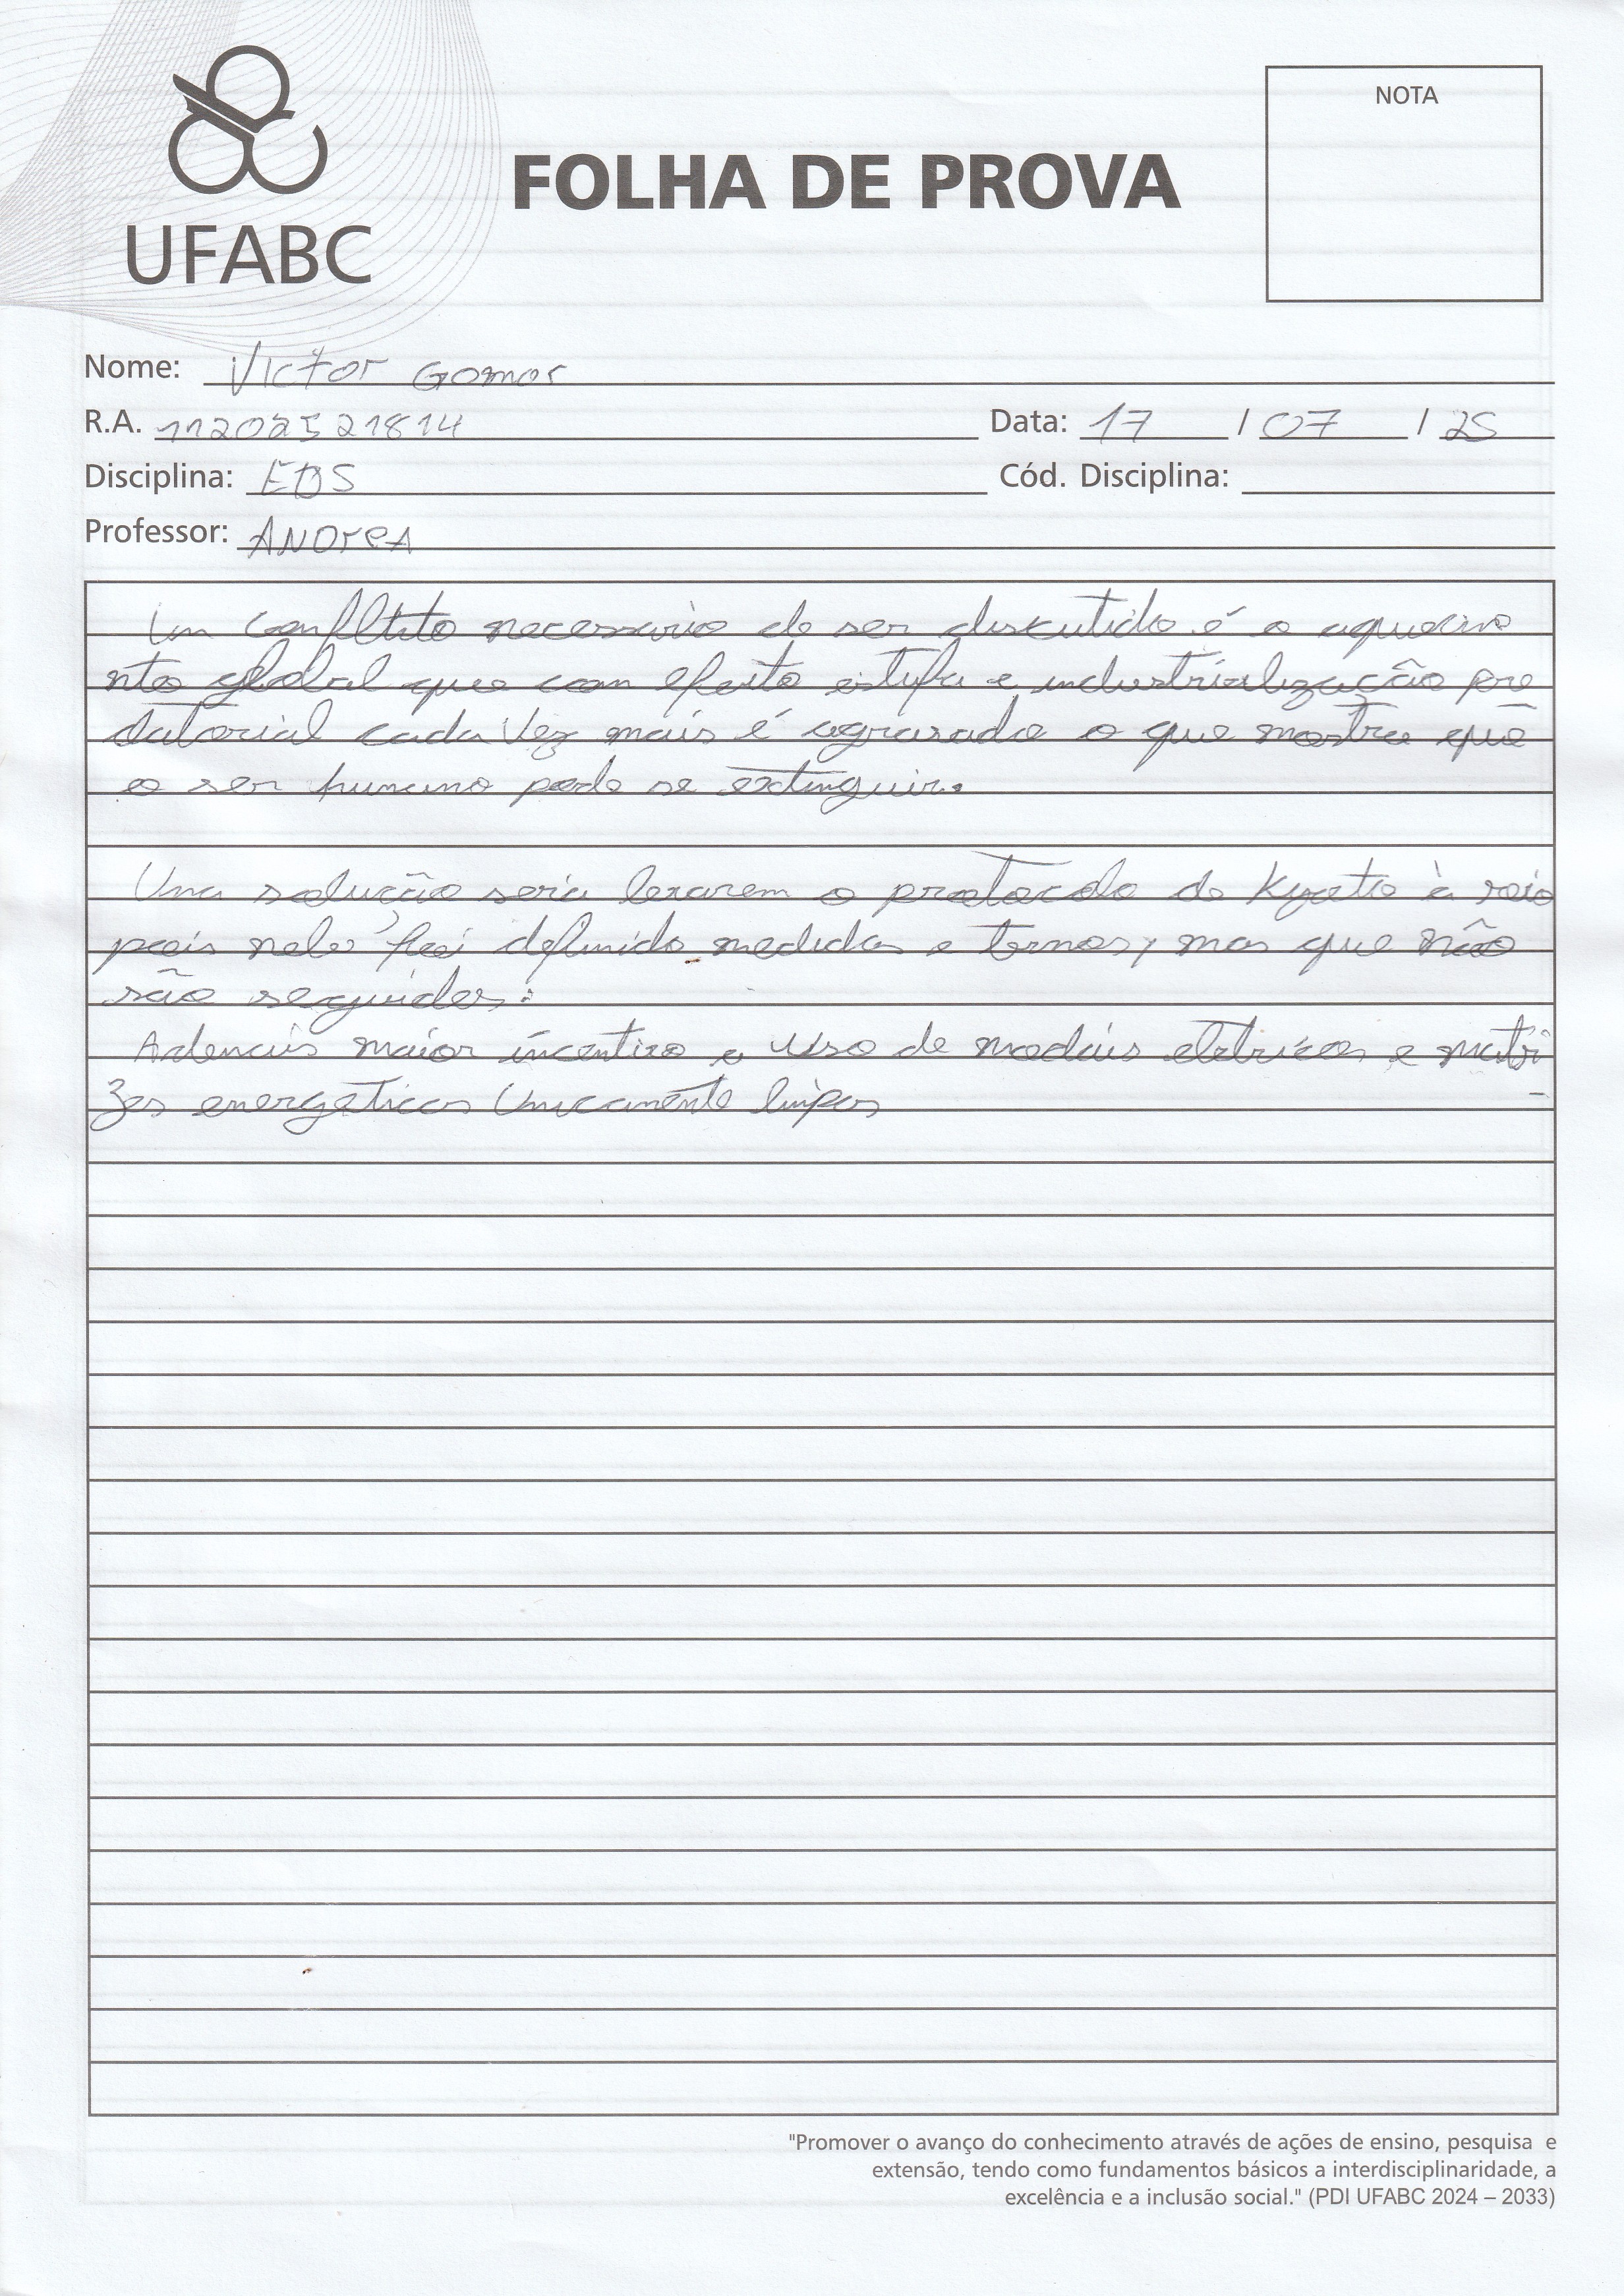 UFABC
FOLHA DE PROVA
NOTA
Nome: Victor Gomes
R.A. 11202521814 Data: 17 / 07 / 25
Disciplina: EDS Cód. Disciplina:
Professor: ANDreA
Um conflito necessario de ser discutido é o aquecime
nto global que com efeito estufa e industrialização pre
datorial cada vez mais é agravado o que mostra que
o ser humano pode se extinguir.
Uma solução seria levarem o protocolo de Kyoto à serio
pois nele foi definido medidas e termos, mas que não
são seguidos.
Ademais maior incentivo e uso de modais eletricos e matri
zes energeticas unicamente limpas
"Promover o avanço do conhecimento através de ações de ensino, pesquisa e
extensão, tendo como fundamentos básicos a interdisciplinaridade, a
excelência e a inclusão social." (PDI UFABC 2024 – 2033)